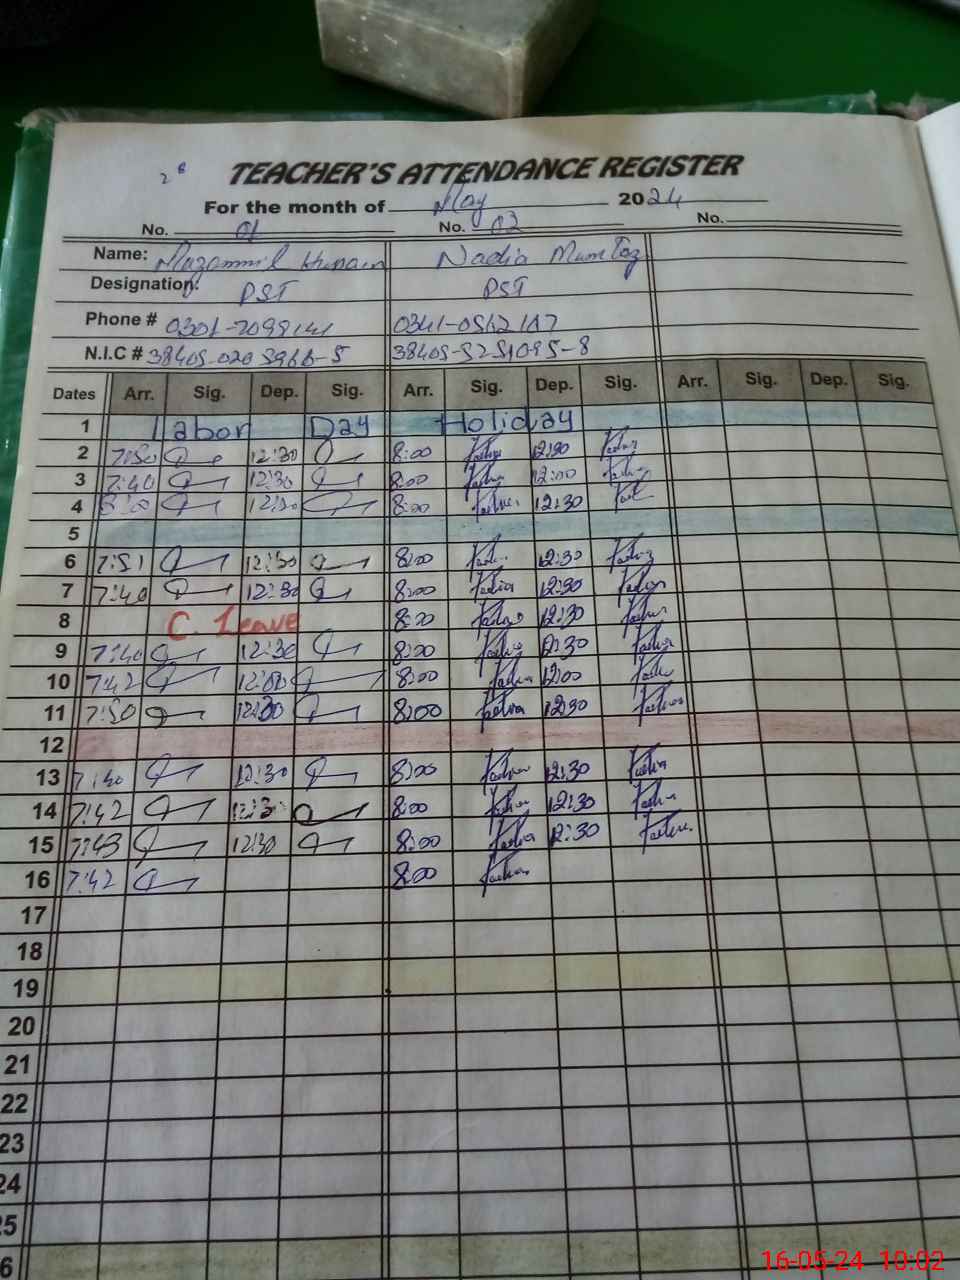 TEACHER'S ATTENDANCE REGISTER
For the month of May 2024
No. 01 No. 02 No.
Name: Muzammil Hussain Nadia Mumtaz
Designation: PST PST
Phone # 0301-7099141 0341-0562107
N.I.C # 38405-020 5966-5 38405-5251095-8
Dates Arr. Sig. Dep. Sig. Arr. Sig. Dep. Sig. Arr. Sig. Dep. Sig.
1 Labor Day Holiday
2 7:50 12:30 8:00 12:30
3 7:40 12:30 8:00 12:00
4 8:00 12:30
5
6 7:51 12:30 8:00 12:30
7 7:40 12:30 8:00 12:30
8 C. Leave 8:00 12:30
9 7:40 12:30 8:00 12:30
10 7:42 12:00 8:00 12:00
11 7:50 8:00 12:30
12
13 7:40 12:30 8:00 12:30
14 7:42 12:30 8:00 12:30
15 7:43 12:30 8:00 12:30
16 7:42 8:00
17
18
19
20
21
22
23
24
25
6
16-05-24 10:02